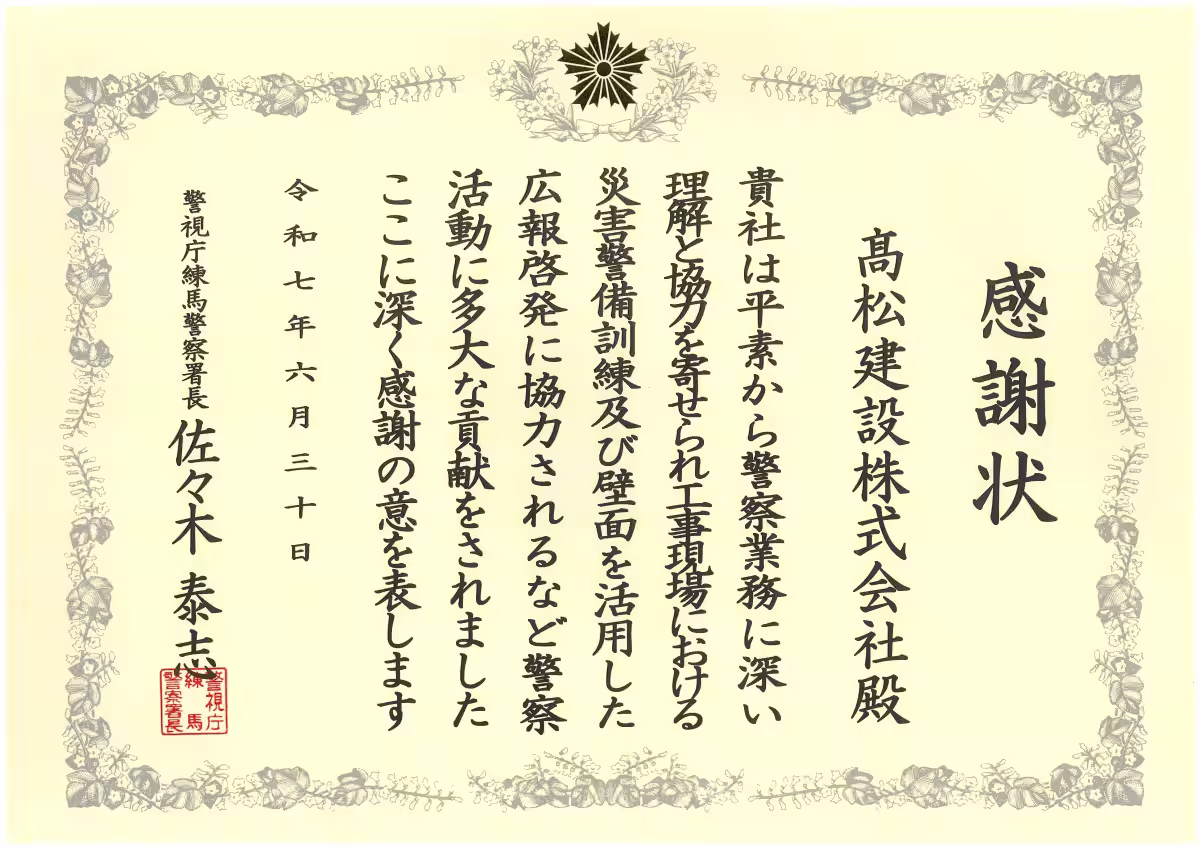 感謝状
髙松建設株式会社殿
貴社は平素から警察業務に深い
理解と協力を寄せられ工事現場における
災害警備訓練及び壁面を活用した
広報啓発に協力されるなど警察
活動に多大な貢献をされました
ここに深く感謝の意を表します
令和七年六月三十日
警視庁練馬警察署長 佐々木 泰志
警視庁
練馬
警察署長